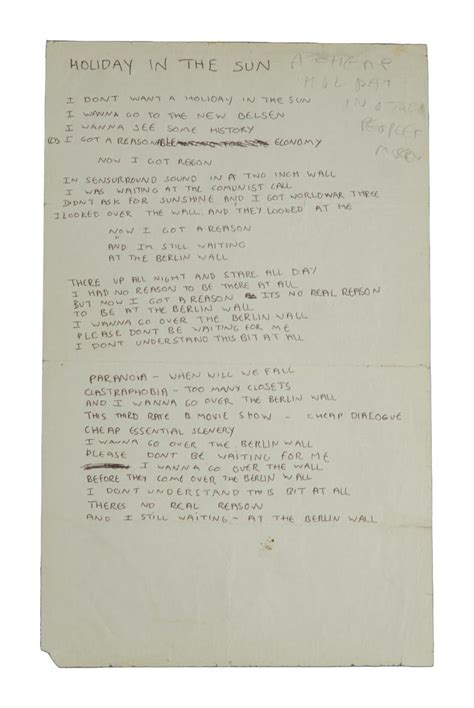 HOLIDAY IN THE SUN
A CHEAP
HOLIDAY
IN OTHER
PEOPLES
MISERY
I DONT WANT A HOLIDAY IN THE SUN
I WANNA GO TO THE NEW BELSEN
I WANNA SEE SOME HISTORY
I GOT A REASONABLE ECONOMY
NOW I GOT REASON
IN SENSURROUND SOUND IN A TWO INCH WALL
I WAS WAITING AT THE COMUNIST CALL
DIDNT ASK FOR SUNSHINE AND I GOT WORLDWAR THREE
I LOOKED OVER THE WALL AND THEY LOOKED AT ME
NOW I GOT A REASON
AND IM STILL WAITING
AT THE BERLIN WALL
THERE UP ALL NIGHT AND STARE ALL DAY
I HAD NO REASON TO BE THERE AT ALL
BUT NOW I GOT A REASON ITS NO REAL REASON
TO BE AT THE BERLIN WALL
I WANNA GO OVER THE BERLIN WALL
PLEASE DONT BE WAITING FOR ME
I DONT UNDERSTAND THIS BIT AT ALL
PARANOIA - WHEN WILL WE FALL
CLASTRAPHOBIA - TOO MANY CLOSETS
AND I WANNA GO OVER THE BERLIN WALL
THIS THIRD RATE B MOVIE SHOW - CHEAP DIALOGUE
CHEAP ESSENTIAL SCENERY
I WANNA GO OVER THE BERLIN WALL
PLEASE DONT BE WAITING FOR ME
I WANNA GO OVER THE WALL
BEFORE THEY COME OVER THE BERLIN WALL
I DONT UNDERSTAND THIS BIT AT ALL
THERES NO REAL REASON
AND I STILL WAITING - AT THE BERLIN WALL